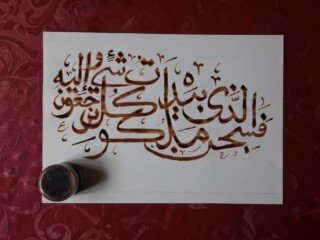 فسبحن الذى بيده ملكوت كل شىء و إليه ترجعون